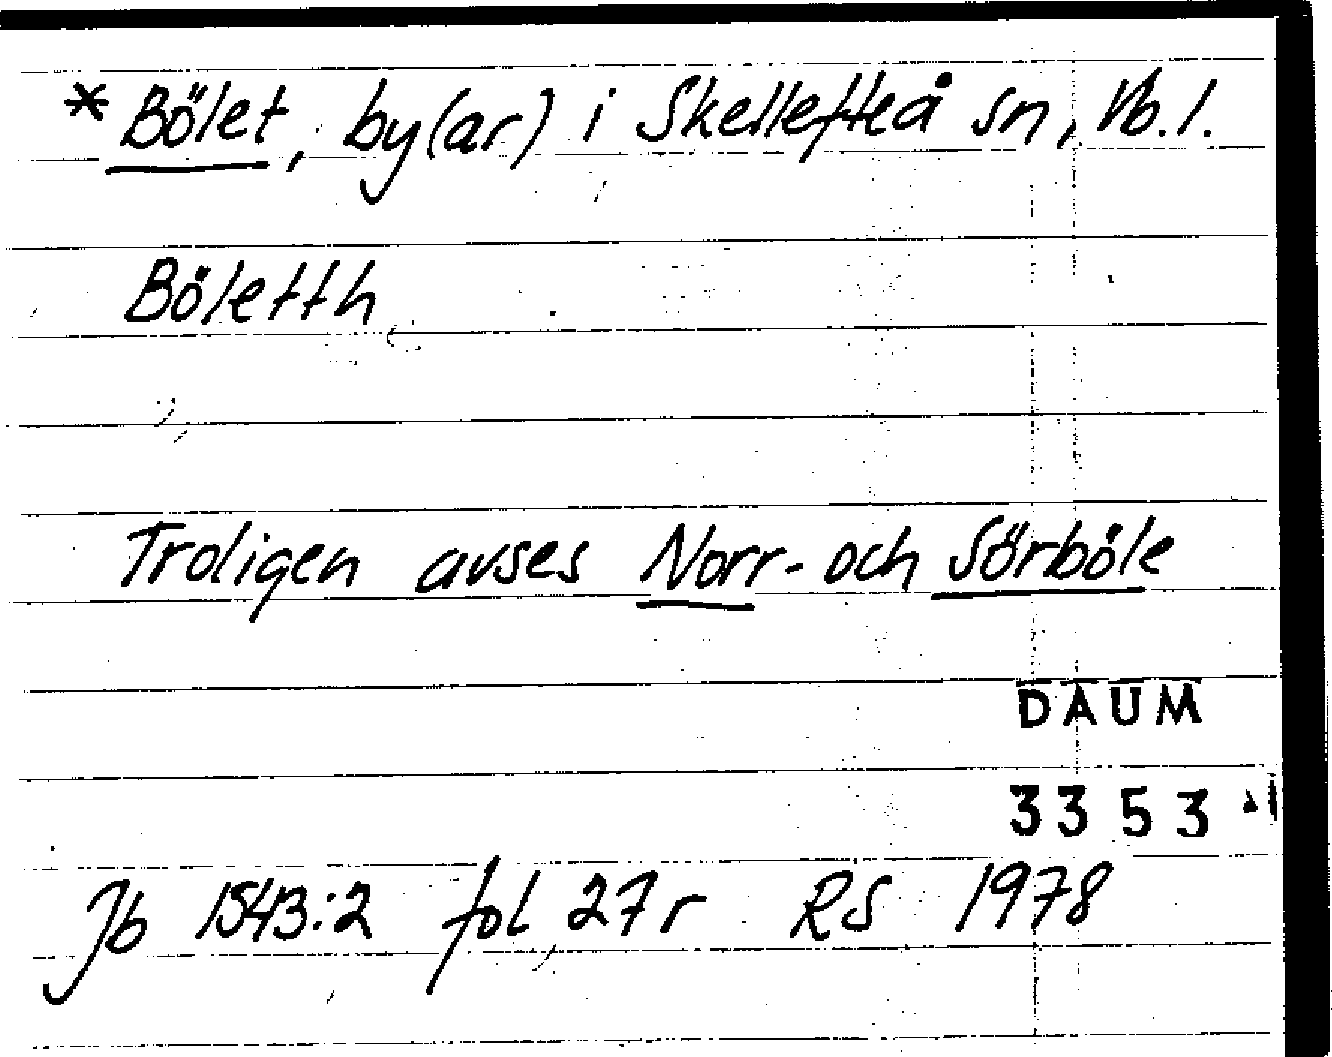 * Bölet, by(ar) i Skellefteå sn, Vb. l.
Böletth
Troligen avses Norr- och Sörböle
DAUM
3353
Jb 1543:2 fol 27r RS 1978